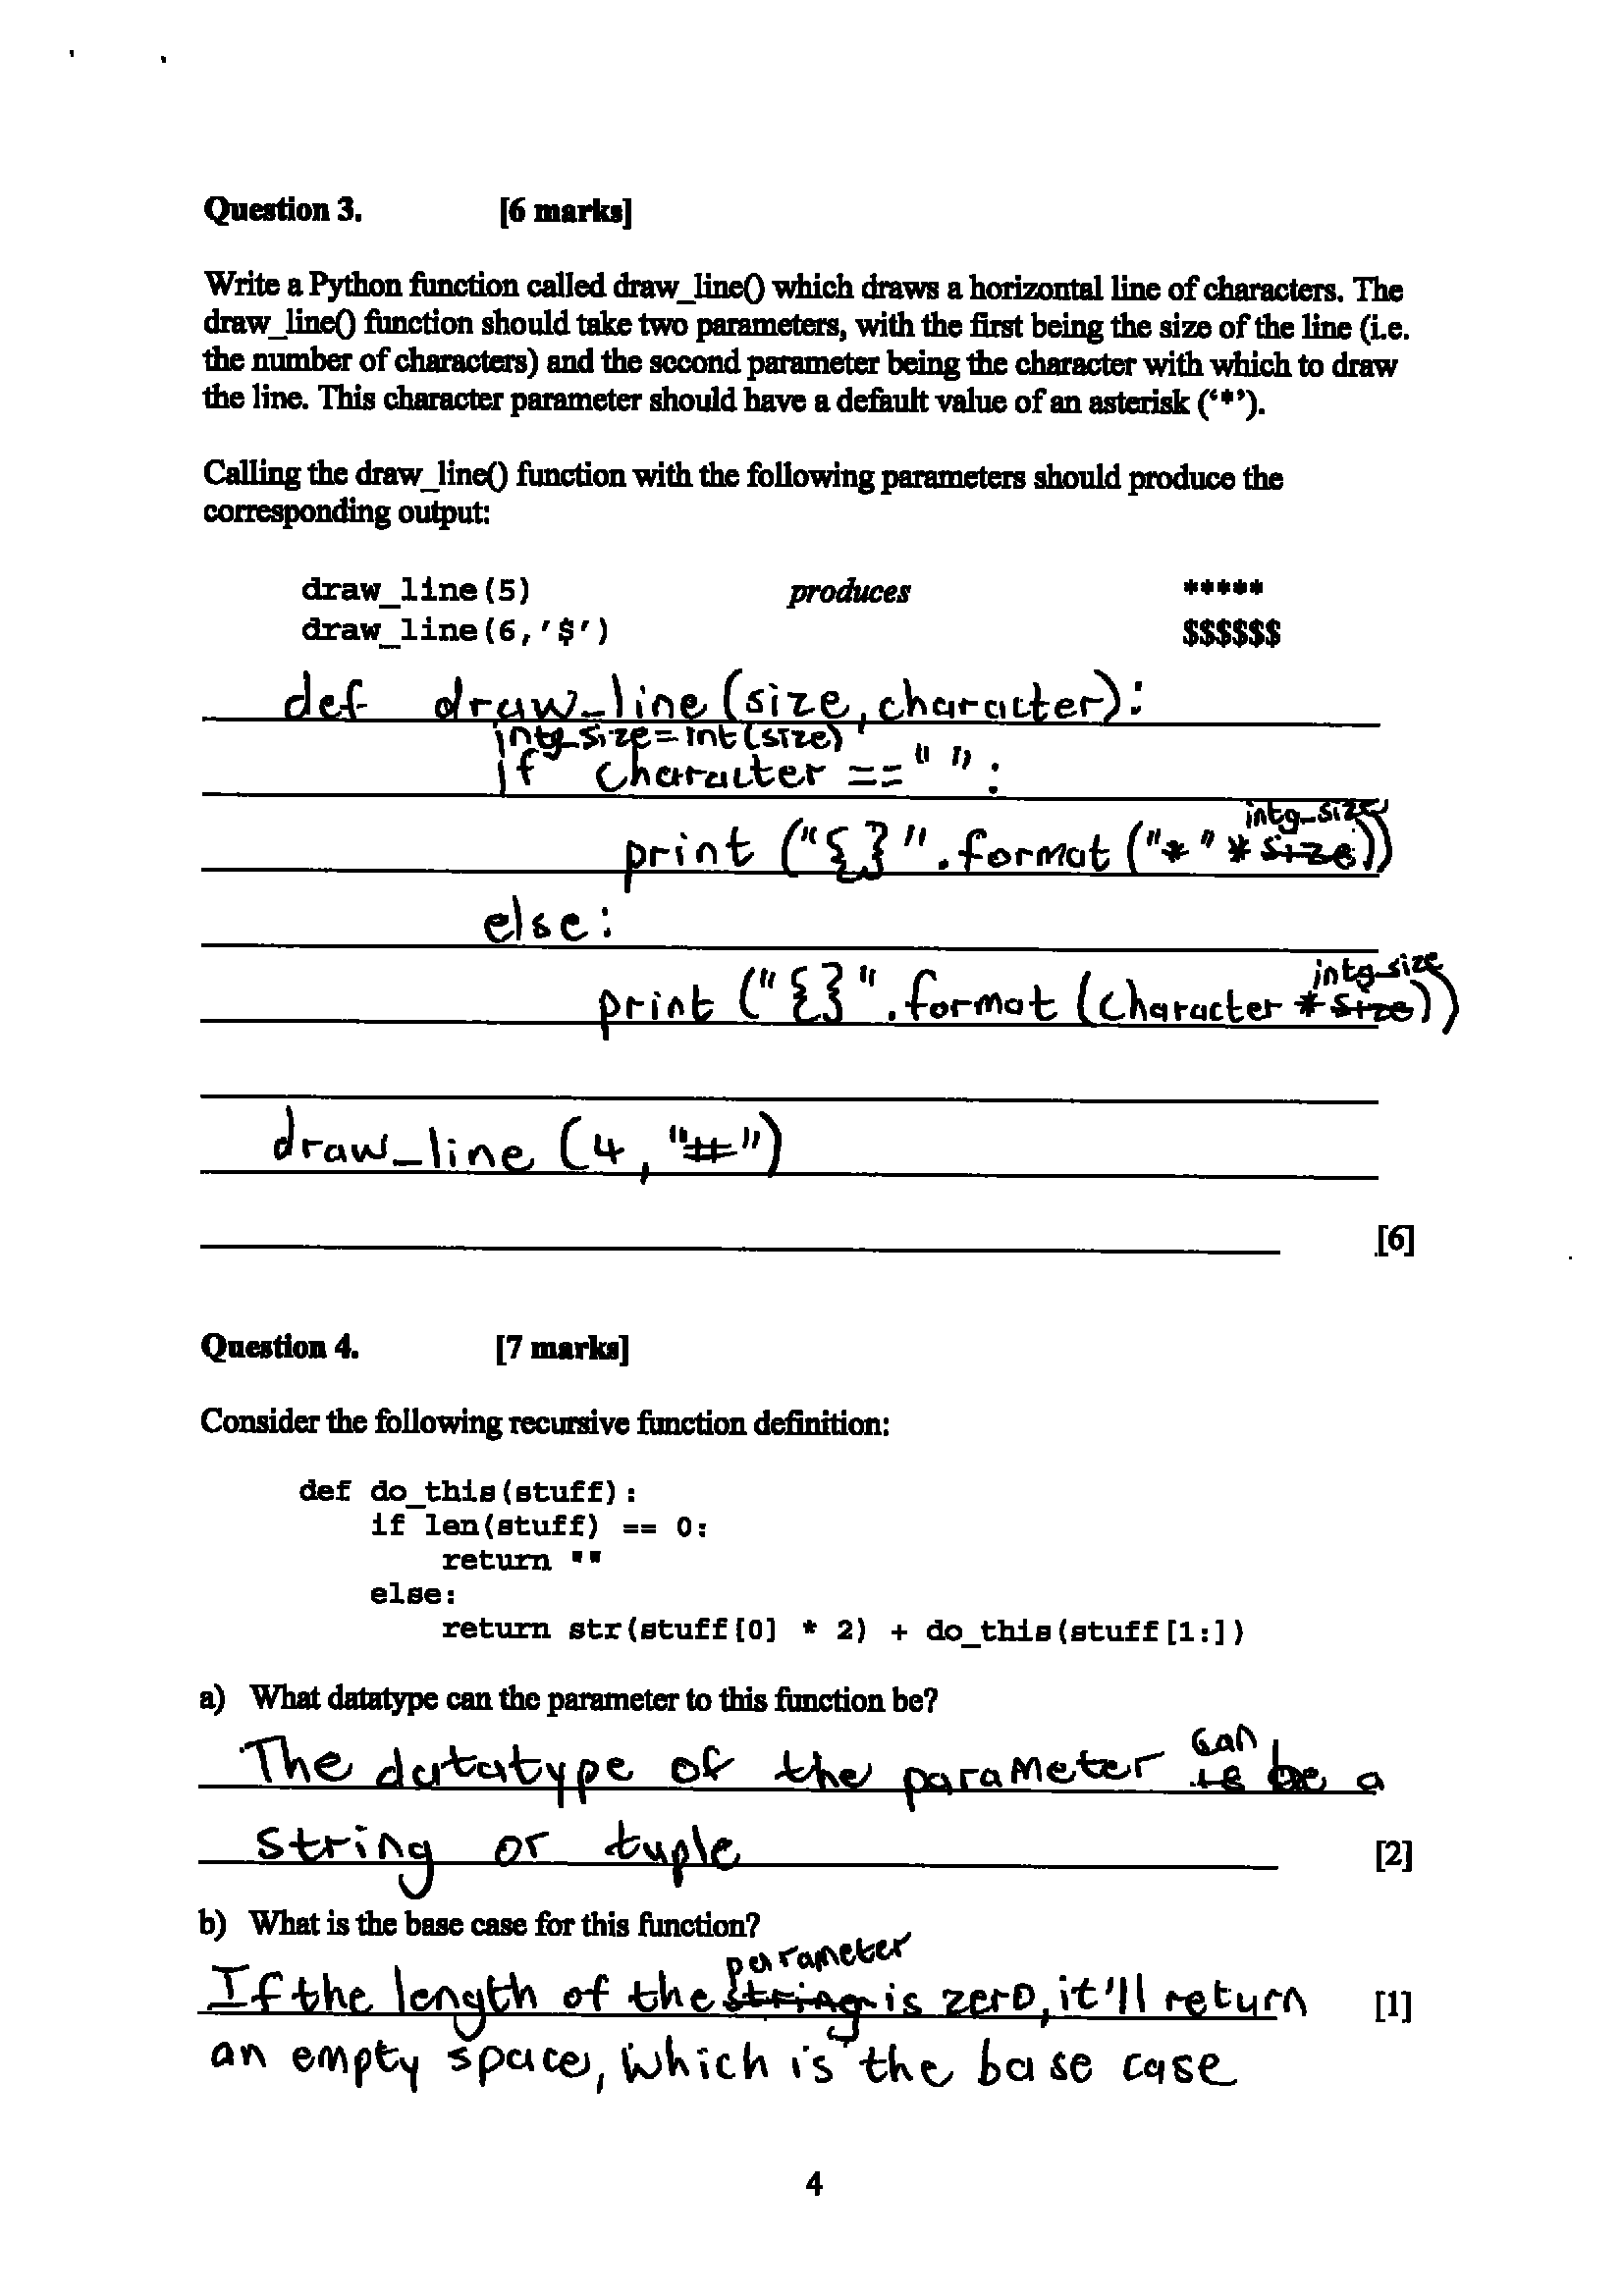 Question 3. [6 marks]
Write a Python function called draw_line() which draws a horizontal line of characters. The
draw_line() function should take two parameters, with the first being the size of the line (i.e.
the number of characters) and the second parameter being the character with which to draw
the line. This character parameter should have a default value of an asterisk (‘*’).
Calling the draw_line() function with the following parameters should produce the
corresponding output:
draw_line(5) produces *****
draw_line(6,'$') $$$$$$
def draw_line(size, character):
intg_size = int(size)
if character == " ":
intg_size
print ("{}".format("*" * size))
else:
intg_size
print ("{}".format(character * size))
draw_line (4, "#")
[6]
Question 4. [7 marks]
Consider the following recursive function definition:
def do_this(stuff):
if len(stuff) == 0:
return ""
else:
return str(stuff[0] * 2) + do_this(stuff[1:])
a) What datatype can the parameter to this function be?
can
The datatype of the parameter is be a
string or tuple [2]
b) What is the base case for this function?
parameter
If the length of the string is zero, it'll return [1]
an empty space, which is the base case
4